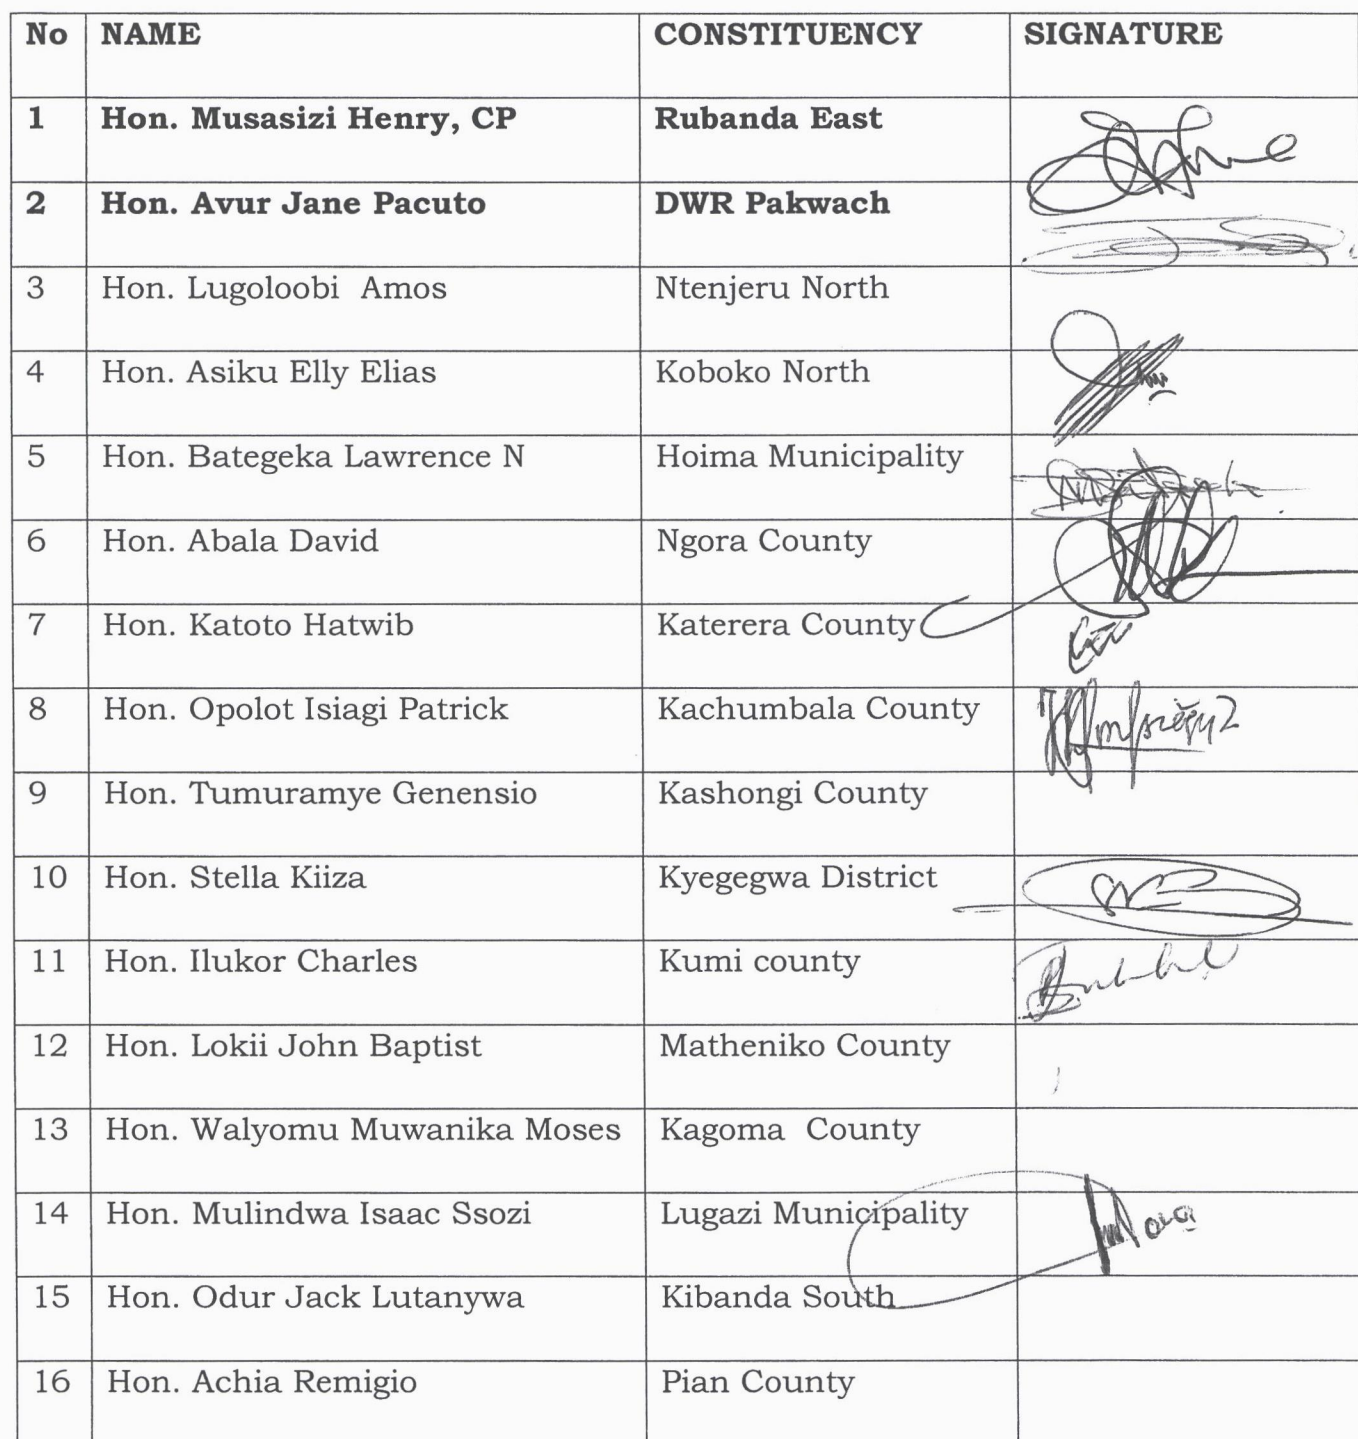 No NAME CONSTITUENCY SIGNATURE
1 Hon. Musasizi Henry, CP Rubanda East
2 Hon. Avur Jane Pacuto DWR Pakwach
3 Hon. Lugoloobi Amos Ntenjeru North
4 Hon. Asiku Elly Elias Koboko North
5 Hon. Bategeka Lawrence N Hoima Municipality
6 Hon. Abala David Ngora County
7 Hon. Katoto Hatwib Katerera County
8 Hon. Opolot Isiagi Patrick Kachumbala County
9 Hon. Tumuramye Genensio Kashongi County
10 Hon. Stella Kiiza Kyegegwa District
11 Hon. Ilukor Charles Kumi county
12 Hon. Lokii John Baptist Matheniko County
13 Hon. Walyomu Muwanika Moses Kagoma County
14 Hon. Mulindwa Isaac Ssozi Lugazi Municipality
15 Hon. Odur Jack Lutanywa Kibanda South
16 Hon. Achia Remigio Pian County